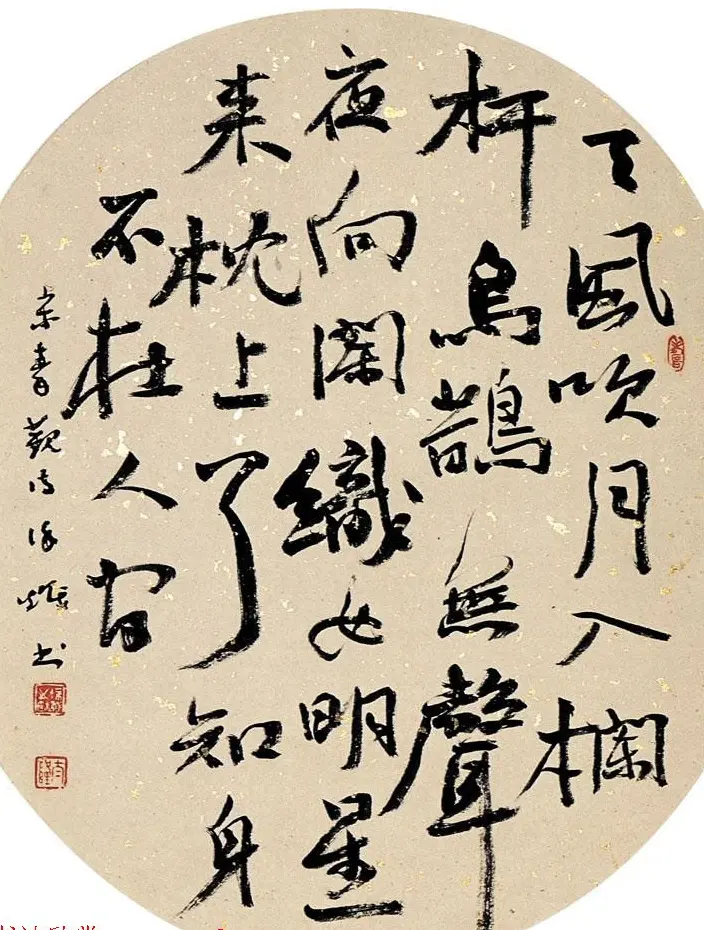 天風吹月入欄
杆烏鵲無聲
夜向闌織女明星
来枕上了知身
不在人間
青觀詩 书